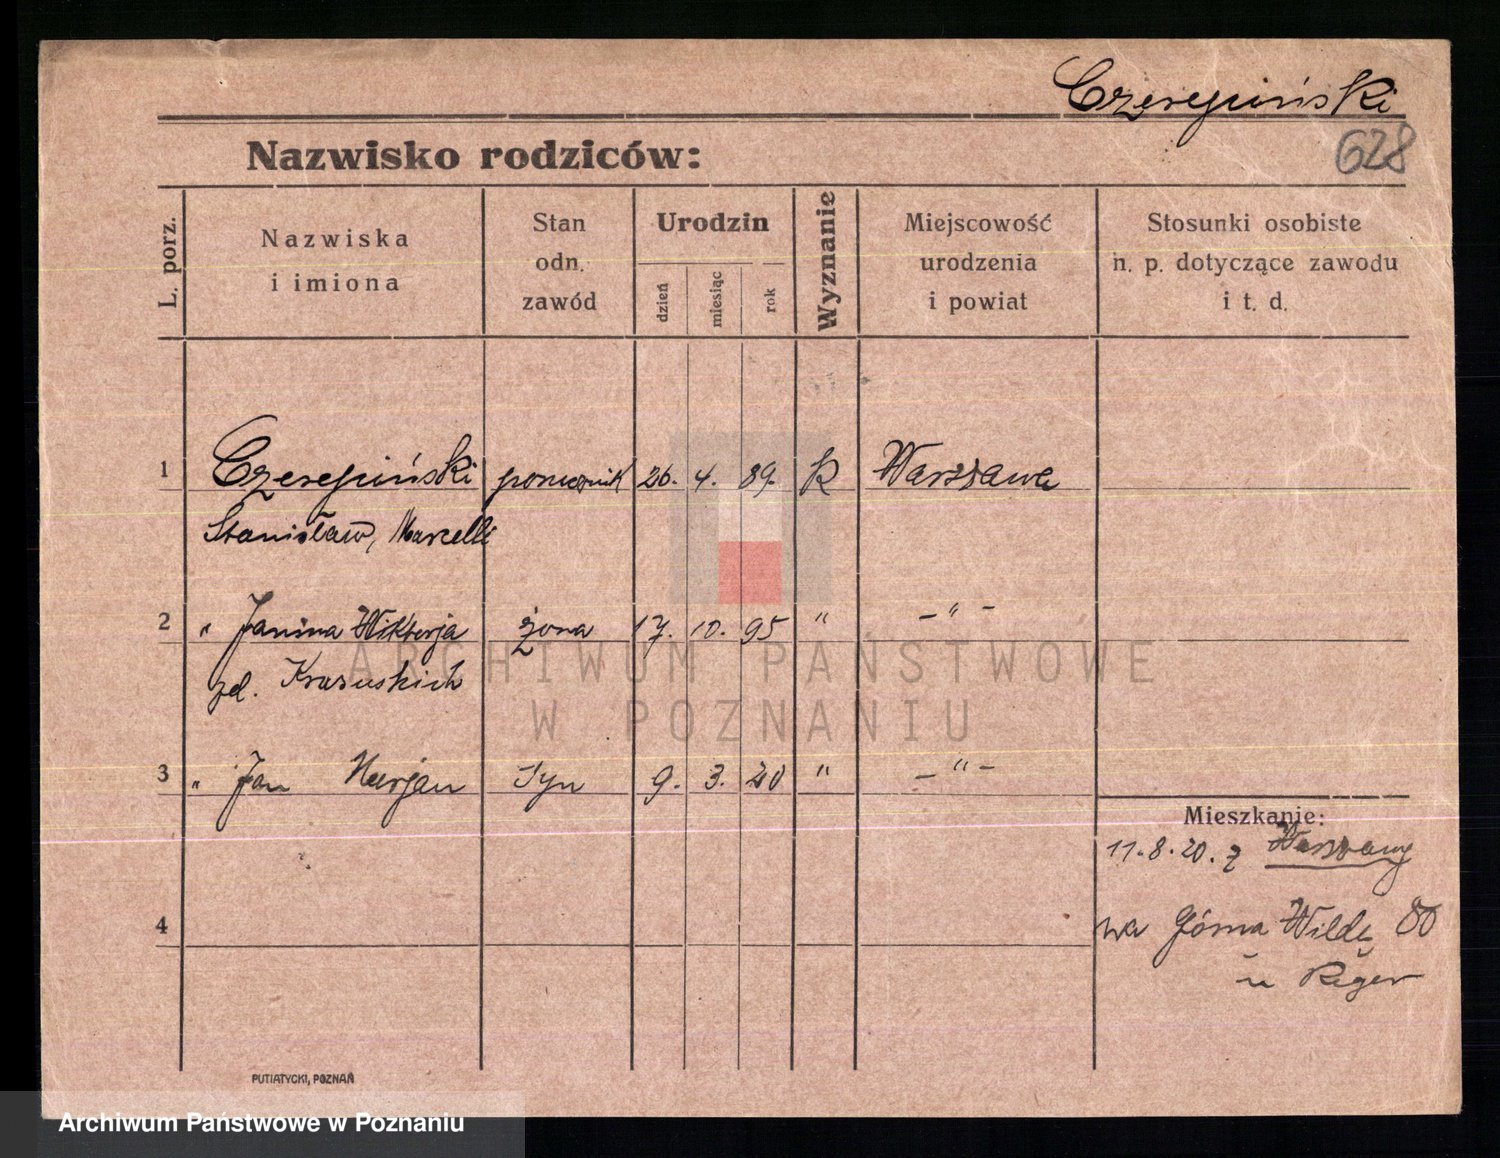 Czerepiński
628
Nazwisko rodziców:
L. porz.
Nazwiska
i imiona
Stan
odn.
zawód
Urodzin
dzień
miesiąc
rok
Wyznanie
Miejscowość
urodzenia
i powiat
Stosunki osobiste
n. p. dotyczące zawodu
i t. d.
1 Czerepiński 26. 4. 89. K Warszawa
Stanisław, Marcelli
2 " Janina Wiktorja żona 17. 10. 95 " — " —
zd.
3 " Jan Marjan Syn 9. 3. 20 " — " —
4
Mieszkanie:
11.8.20. z Warszawy
na Górna Wildę 80
u Reger
PUTIATYCKI, POZNAŃ
ARCHIWUM PAŃSTWOWE
W POZNANIU
Archiwum Państwowe w Poznaniu